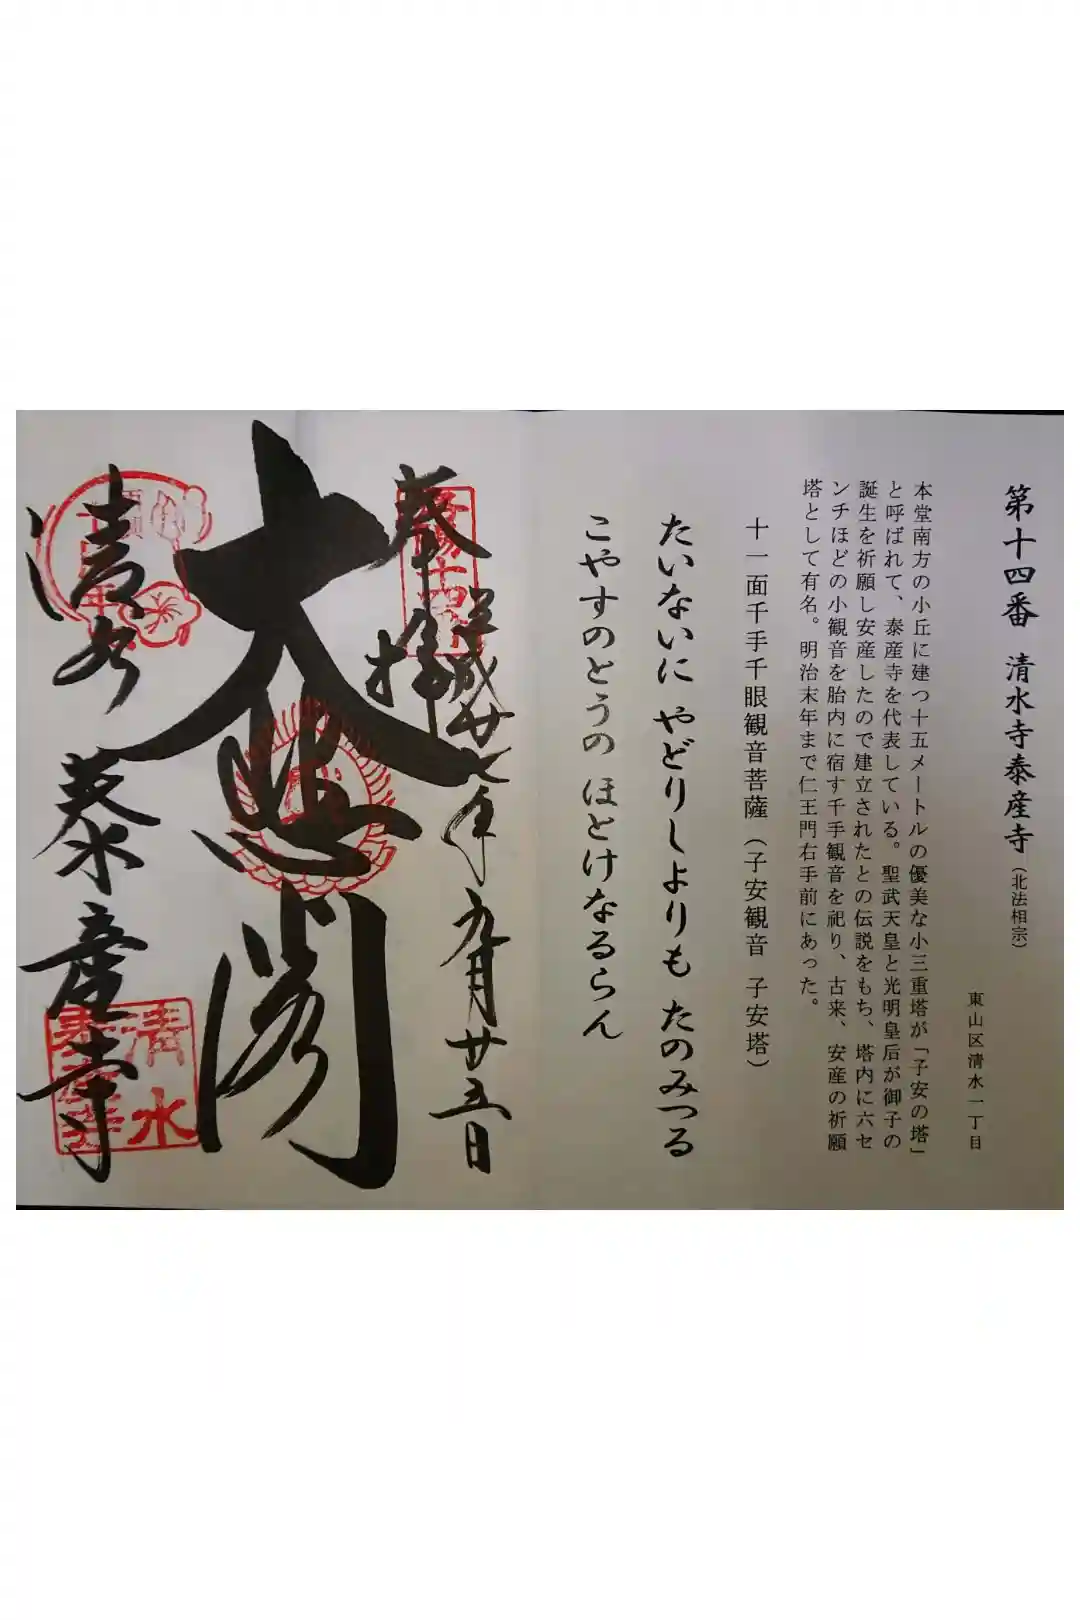 第十四番 清水寺泰産寺（北法相宗）
東山区清水一丁目
本堂南方の小丘に建つ十五メートルの優美な小三重塔が「子安の塔」
と呼ばれて、泰産寺を代表している。聖武天皇と光明皇后が御子の
誕生を祈願し安産したので建立されたとの伝説をもち、塔内に六セ
ンチほどの小観音を胎内に宿す千手観音を祀り、古来、安産の祈願
塔として有名。明治末年まで仁王門右手前にあった。
十一面千手千眼観音菩薩（子安観音 子安塔）
たいないに やどりしよりも たのみつる
こやすのとうの ほとけなるらん
奉拝
平成廿七年九月廿五日
大悲閣
清水 泰産寺
洛陽十四番
清水
泰産寺